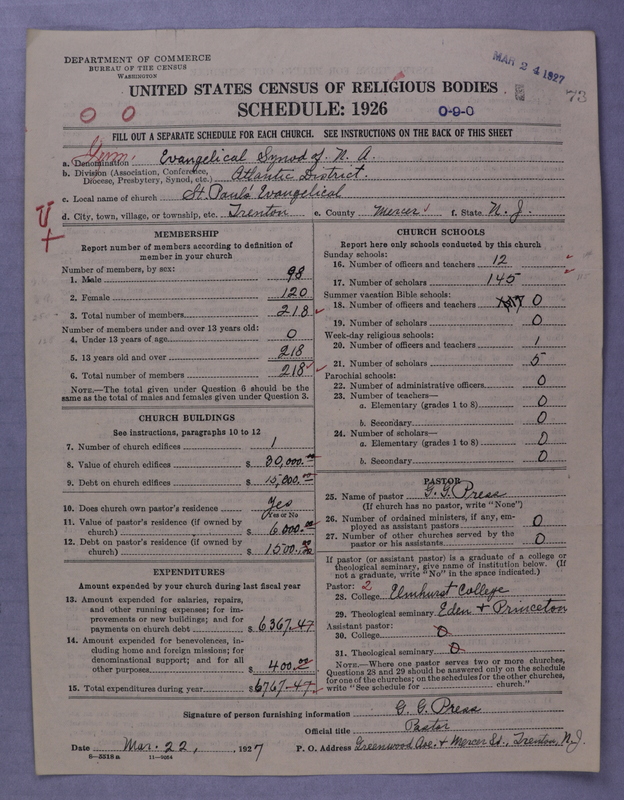 DEPARTMENT OF COMMERCE
BUREAU OF THE CENSUS
WASHINGTON
MAR 24 1927
73
UNITED STATES CENSUS OF RELIGIOUS BODIES
SCHEDULE: 1926
0 0
0-9-0
FILL OUT A SEPARATE SCHEDULE FOR EACH CHURCH. SEE INSTRUCTIONS ON THE BACK OF THIS SHEET
a. Denomination Evangelical Synod of N. A.
b. Division (Association, Conference, Diocese, Presbytery, Synod, etc.) Atlantic District.
c. Local name of church St. Pauls Evangelical
d. City, town, village, or township, etc. Trenton e. County Mercer f. State N. J.
MEMBERSHIP
Report number of members according to definition of
member in your church
Number of members, by sex:
1. Male 98
2. Female 120
3. Total number of members 218
Number of members under and over 13 years old:
4. Under 13 years of age 0
5. 13 years old and over 218
6. Total number of members 218
NOTE.—The total given under Question 6 should be
same as the total of males and females given under Question 3.
CHURCH BUILDINGS
See instructions, paragraphs 10 to 12
7. Number of church edifices 1
8. Value of church edifices $ 30,000.00
9. Debt on church edifices $ 15,000.00
10. Does church own pastor's residence Yes
Yes or No
11. Value of pastor's residence (if owned by
church) $ 6,000.00
12. Debt on pastor's residence (if owned by
church) $ 1500.00
EXPENDITURES
Amount expended by your church during last fiscal year
13. Amount expended for salaries, repairs,
and other running expenses; for im-
provements or new buildings; and for
payments on church debt $ 6367.47
14. Amount expended for benevolences, in-
cluding home and foreign missions; for
denominational support; and for all
other purposes $ 400.00
15. Total expenditures during year $ 6767.47
CHURCH SCHOOLS
Report here only schools conducted by this church
Sunday schools:
16. Number of officers and teachers 12
17. Number of scholars 145
Summer vacation Bible schools:
18. Number of officers and teachers 0
19. Number of scholars 0
Week-day religious schools:
20. Number of officers and teachers 1
21. Number of scholars 5
Parochial schools:
22. Number of administrative officers 0
23. Number of teachers—
a. Elementary (grades 1 to 8) 0
b. Secondary 0
24. Number of scholars—
a. Elementary (grades 1 to 8) 0
b. Secondary 0
PASTOR
25. Name of pastor G. G. Press
(If church has no pastor, write "None")
26. Number of ordained ministers, if any, em-
ployed as assistant pastors 0
27. Number of other churches served by the
pastor or his assistants 0
If pastor (or assistant pastor) is a graduate of a college or
theological seminary, give name of institution below. (If
not a graduate, write "No" in the space indicated.)
Pastor: 2
28. College Elmhurst College
29. Theological seminary Eden & Princeton
Assistant pastor:
30. College 0
31. Theological seminary 0
NOTE.—Where one pastor serves two or more churches,
Questions 28 and 29 should be answered only on the schedule
for one of the churches; on the schedules for the other churches,
write "See schedule for church."
Signature of person furnishing information G. G. Press
Official title Pastor
Date Mar. 22, , 1927 P. O. Address Greenwood Ave. & Mercer St., Trenton, N. J.
6-5518 a 11-9054